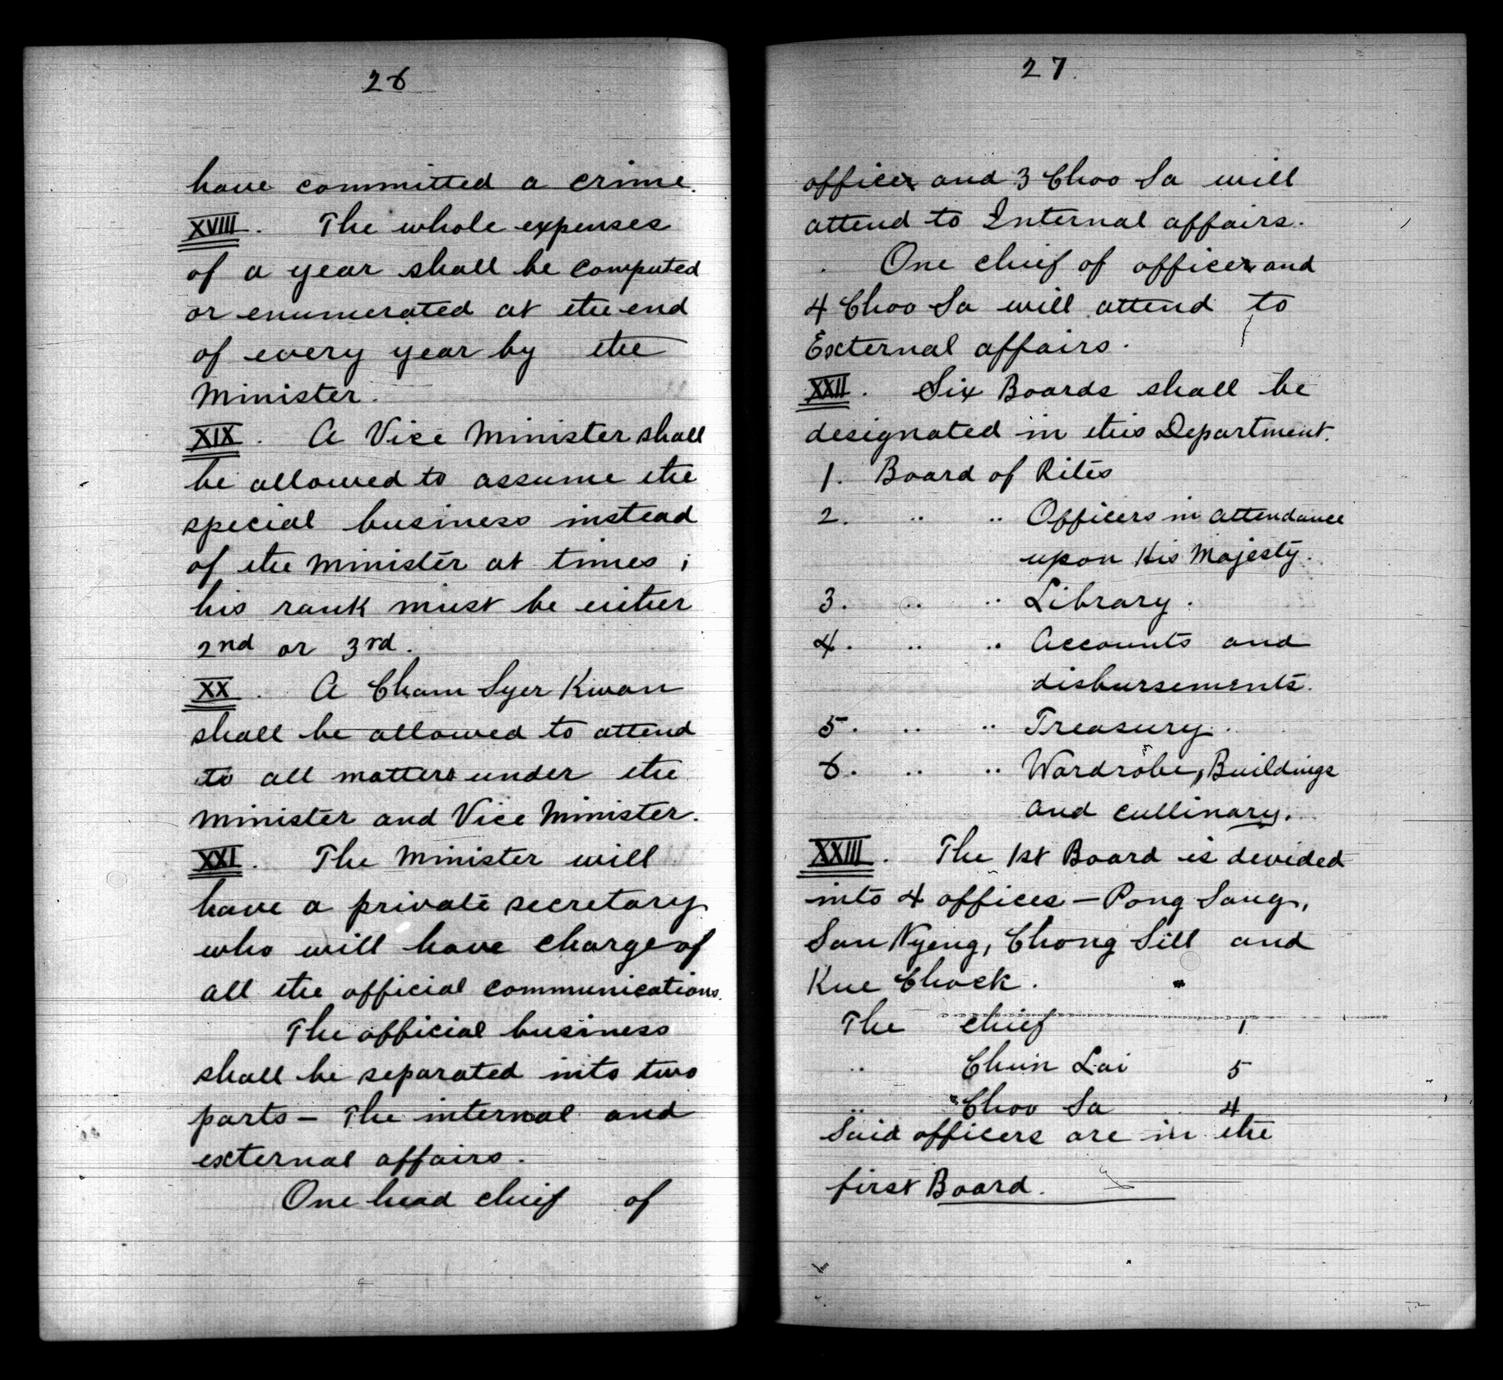 26
have committed a crime.
XVIII. The whole expenses
of a year shall be computed
or enumerated at the end
of every year by the
Minister.
XIX. A Vice Minister shall
be allowed to assume the
special business instead
of the Minister at times;
his rank must be either
2nd or 3rd.
XX. A Cham Syer Kwan
shall be allowed to attend
to all matters under the
minister and Vice Minister.
XXI. The Minister will
have a private secretary
who will have charge of
all the official communications.
The official business
shall be separated into two
parts – The internal and
external affairs.
One head chief of
27.
officer and 3 Choo Sa will
attend to Internal affairs.
One chief of officer and
4 Choo Sa will attend to
External affairs.
XXII. Six Boards shall be
designated in this Department.
1. Board of Rites
2. " " Officers in attendance
upon His Majesty.
3. " " Library.
4. " " Accounts and
disbursements.
5. " " Treasury.
6. " " Wardrobe, Buildings
and cullinary.
XXIII. The 1st Board is devided
into 4 offices – Pong Sang,
San Nyeng, Chong Sill and
Kue Chock.
The chief 1
" Chun Lai 5
" Choo Sa 4
Said officers are in the
first Board.